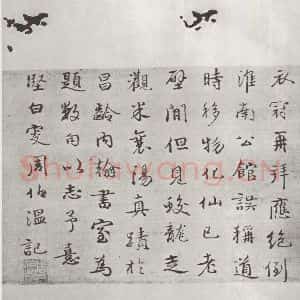 衣冠再拜應絕倒
淮南公館誤稱道
時移物化仙已老
壁間但見蛟龍走
觀米襄陽真蹟於
昌齡內翰書室為
題數句以志予意
堅白叟周伯溫記